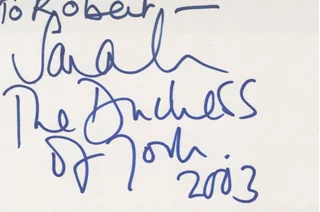 To Robert —
Sarah
The Duchess
of York.
2003